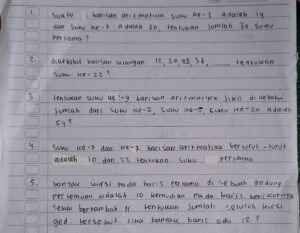 1. Suatu barisan aritmatika suku ke-3 adalah 14
dan suku ke-7 adalah 30, tentukan jumlah 30 suku
pertama?
2. diketahui barisan bilangan 12, 20, 28, 36, ....... tentukan
suku ke-22?
3 tentukan suku ke-9 barisan aritmatika jika diketahui
jumlah dari suku ke-2, suku ke- , suku ke-20 adalah
54?
4 suku ke-3 dan ke- barisan aritmatika berturut-turut
adalah 10 dan 22 tentukan suku pertama
5. banyak kursi pada baris pertama di sebuah gedung
pertemuan adalah 10 kemudian pada baris berikutnya
selalu bertambah 4 tentukan jumlah seluruh kursi
ged. tersebut jika banyak baris ada 12?